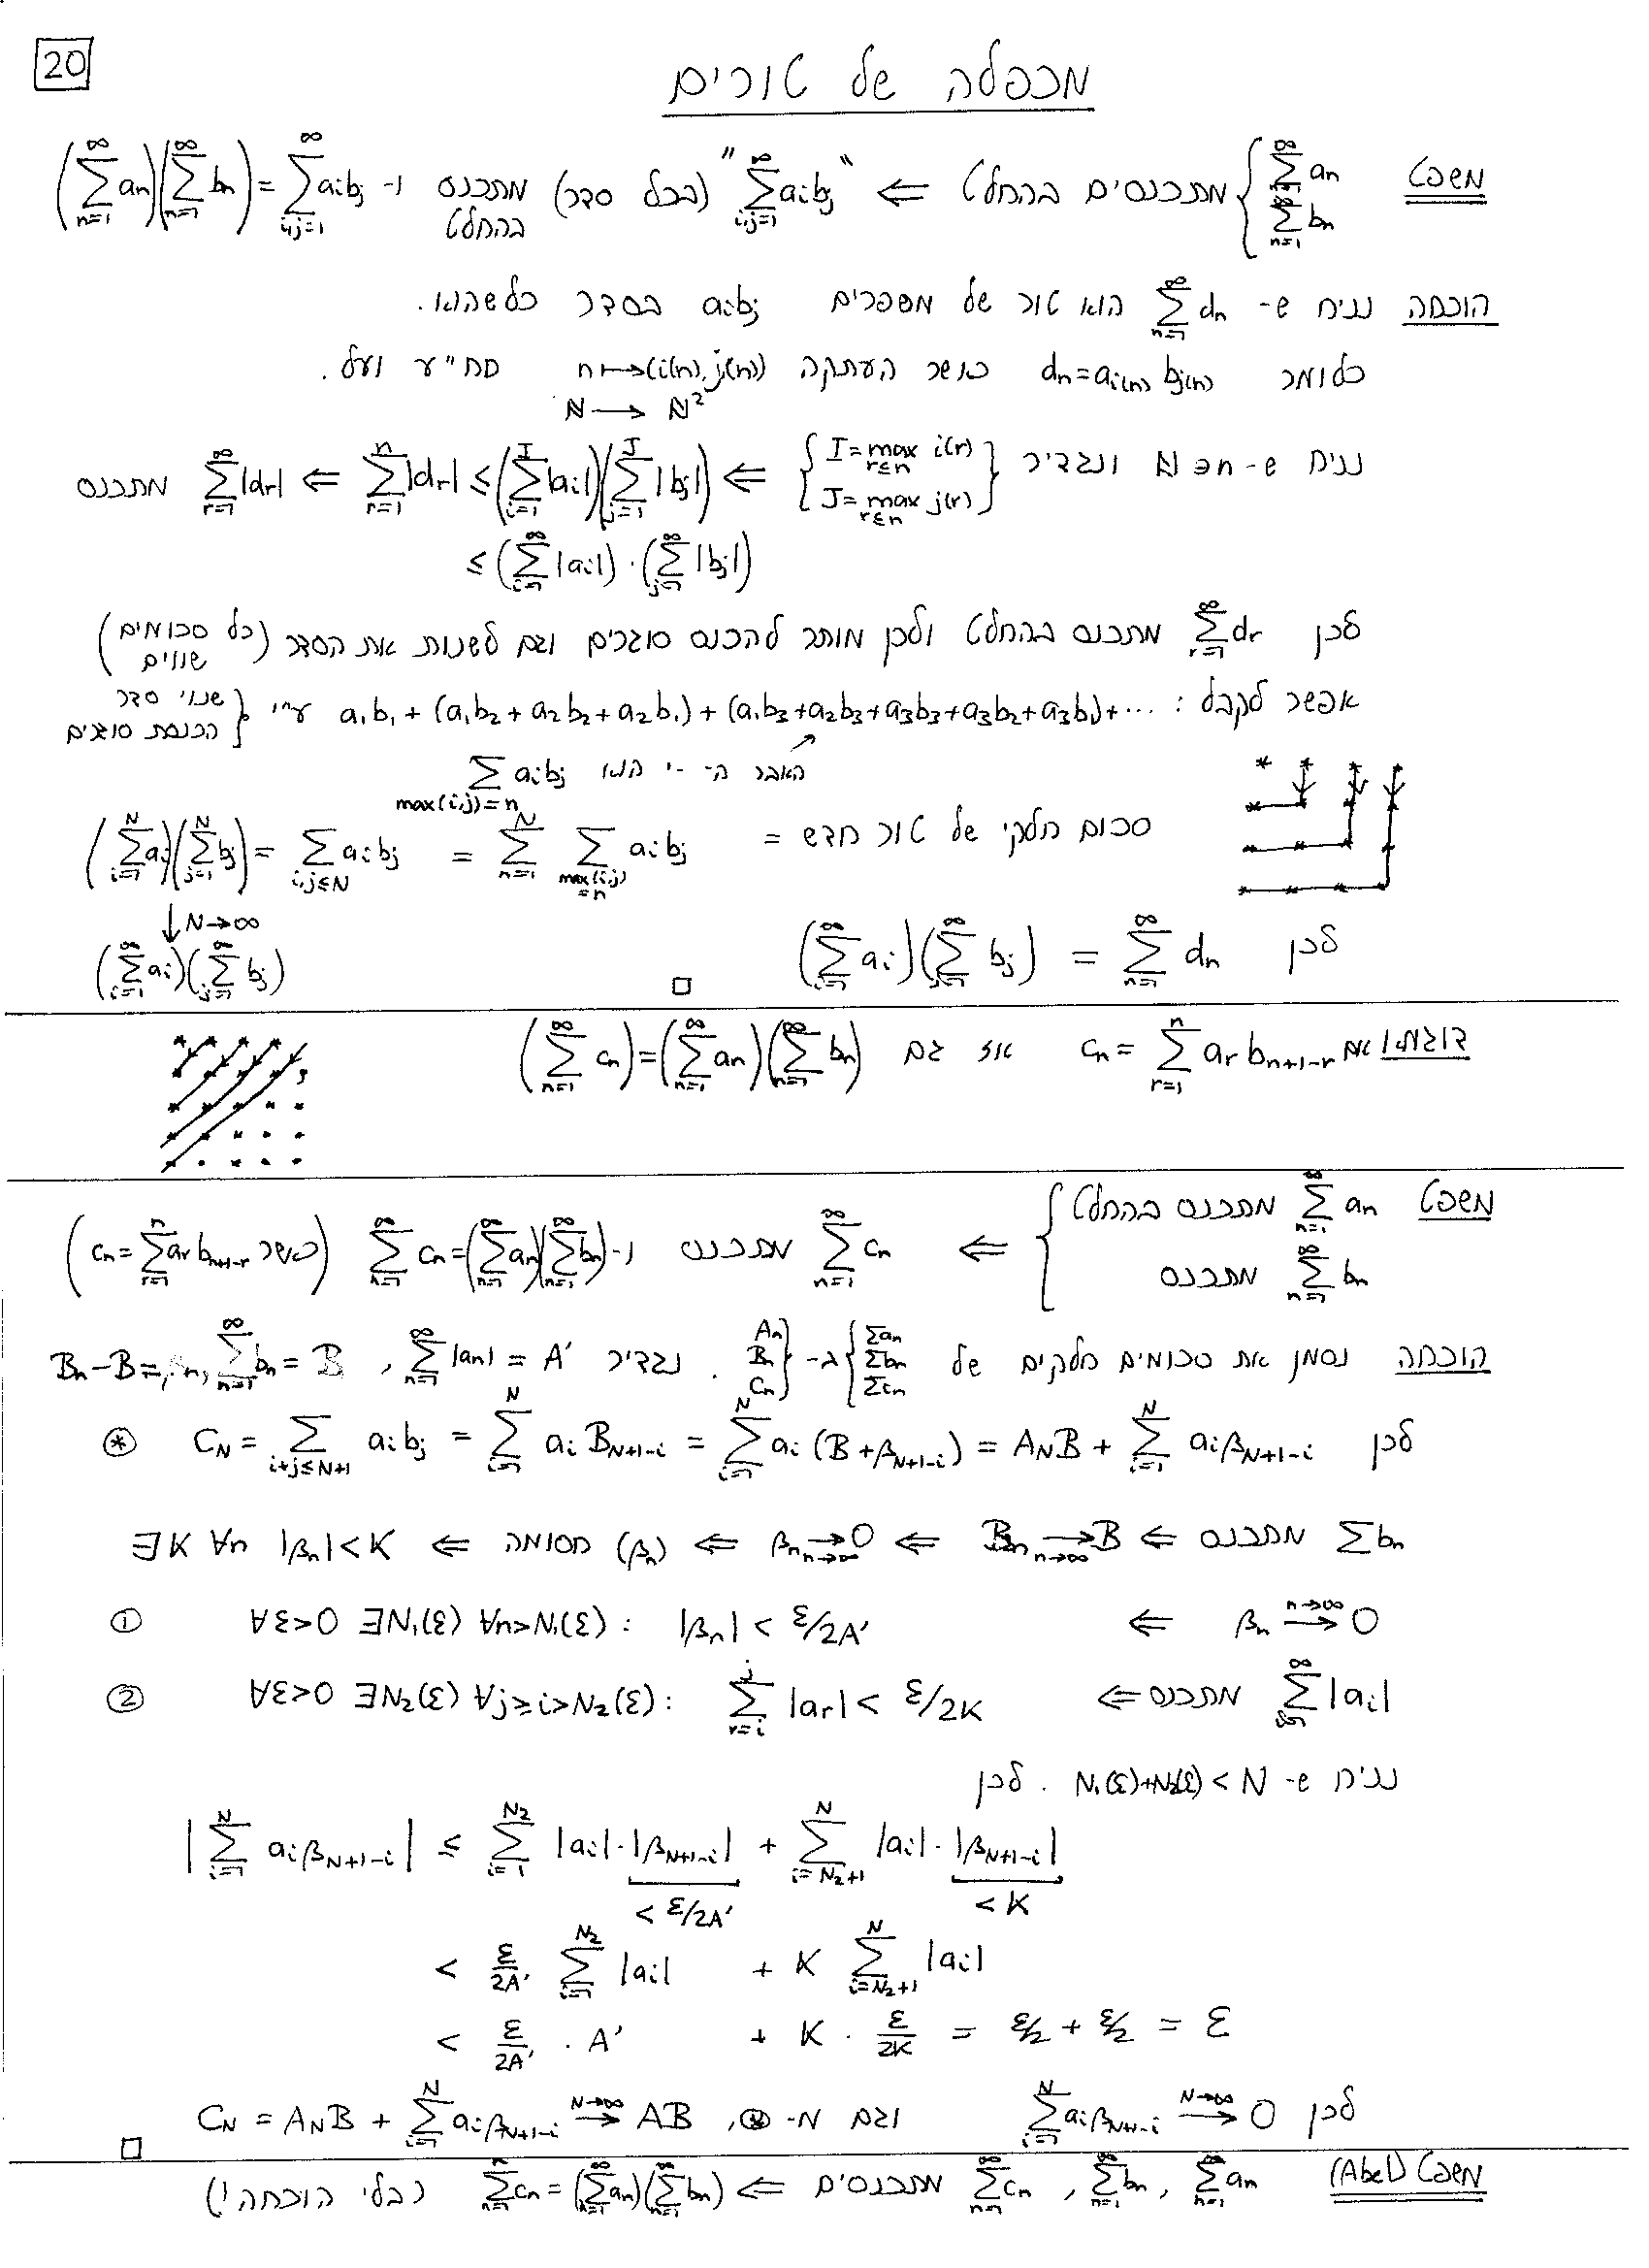 20
מכפלה של טורים
משפט { \sum_{n=1}^{\infty} a_n , \sum_{n=1}^{\infty} b_n } מתכנסים בהחלט ⇐ "\sum_{i,j=1}^{\infty} a_i b_j" (בכל סדר) מתכנס בהחלט ו- (\sum_{n=1}^{\infty} a_n)(\sum_{n=1}^{\infty} b_n) = \sum_{i,j=1}^{\infty} a_i b_j
הוכחה נניח ש- \sum_{n=1}^{\infty} d_n הוא טור של מספרים a_i b_j בסדר כלשהוא.
כלומר d_n = a_{i(n)} b_{j(n)} כאשר העתקה n ↦ (i(n), j(n)) חח"ע ועל.
ℕ → ℕ²
נניח ש- n∈ℕ ונגדיר { I = max_{r≤n} i(r) , J = max_{r≤n} j(r) } ⇐ \sum_{r=1}^{n} |d_r| ≤ (\sum_{i=1}^{I} |a_i|)(\sum_{j=1}^{J} |b_j|) ⇐ \sum_{r=1}^{\infty} |d_r| מתכנס
≤ (\sum_{i=1}^{\infty} |a_i|) · (\sum_{j=1}^{\infty} |b_j|)
לכן \sum_{r=1}^{\infty} d_r מתכנס בהחלט ולכן מותר להכנס סוגריים וגם לשנות את הסדר (כל סכומים שווים)
אפשר לקבל : a_1b_1 + (a_1b_2 + a_2b_2 + a_2b_1) + (a_1b_3 + a_2b_3 + a_3b_3 + a_3b_2 + a_3b_1) + ... ע"י { שנוי סדר הכנסת סוגרים
האבר ה- -י הוא \sum_{max(i,j)=n} a_i b_j
סכום חלקי של טור חדש = \sum_{n=1}^{N} \sum_{max(i,j)=n} a_i b_j = \sum_{i,j≤N} a_i b_j = (\sum_{i=1}^{N} a_i)(\sum_{j=1}^{N} b_j)
↓ N→∞
(\sum_{i=1}^{\infty} a_i)(\sum_{j=1}^{\infty} b_j)
לכן (\sum_{i=1}^{\infty} a_i)(\sum_{j=1}^{\infty} b_j) = \sum_{n=1}^{\infty} d_n □
דוגמא אם c_n = \sum_{r=1}^{n} a_r b_{n+1-r} אז גם (\sum_{n=1}^{\infty} c_n) = (\sum_{n=1}^{\infty} a_n)(\sum_{n=1}^{\infty} b_n)
משפט { \sum_{n=1}^{\infty} a_n מתכנס בהחלט , \sum_{n=1}^{\infty} b_n מתכנס } ⇐ \sum_{n=1}^{\infty} c_n מתכנס ו- \sum_{n=1}^{\infty} c_n = (\sum_{n=1}^{\infty} a_n)(\sum_{n=1}^{\infty} b_n) (כאשר c_n = \sum_{r=1}^{n} a_r b_{n+1-r})
הוכחה נסמן את סכומים חלקים של { Σa_n , Σb_n , Σc_n } ב- { A_n , B_n , C_n }. נגדיר \sum_{n=1}^{\infty} |a_n| = A' , \sum_{n=1}^{\infty} b_n = B , B_n - B = β_n
לכן C_N = \sum_{i+j≤N+1} a_i b_j = \sum_{i=1}^{N} a_i B_{N+1-i} = \sum_{i=1}^{N} a_i (B + β_{N+1-i}) = A_N B + \sum_{i=1}^{N} a_i β_{N+1-i} ⊛
Σb_n מתכנס ⇐ B_n →_{n→∞} B ⇐ β_n →_{n→∞} 0 ⇐ (β_n) חסומה ⇐ ∃K ∀n |β_n| < K
β_n →^{n→∞} 0 ⇐ ∀ε>0 ∃N_1(ε) ∀n>N_1(ε) : |β_n| < ε/2A' ①
\sum_{i=1}^{\infty} |a_i| מתכנס ⇐ ∀ε>0 ∃N_2(ε) ∀j≥i>N_2(ε) : \sum_{r=i}^{j} |a_r| < ε/2K ②
נניח ש- N_1(ε)+N_2(ε) < N . לכן
|\sum_{i=1}^{N} a_i β_{N+1-i}| ≤ \sum_{i=1}^{N_2} |a_i| · |β_{N+1-i}| + \sum_{i=N_2+1}^{N} |a_i| · |β_{N+1-i}|
< ε/2A' < K
< \frac{ε}{2A'} \sum_{i=1}^{N_2} |a_i| + K \sum_{i=N_2+1}^{N} |a_i|
< \frac{ε}{2A'} · A' + K · \frac{ε}{2K} = ε/2 + ε/2 = ε
לכן \sum_{i=1}^{N} a_i β_{N+1-i} →^{N→∞} 0 וגם מ- ⊛, C_N = A_N B + \sum_{i=1}^{N} a_i β_{N+1-i} →^{N→∞} AB □
משפט (Abel) \sum_{n=1}^{\infty} a_n , \sum_{n=1}^{\infty} b_n , \sum_{n=1}^{\infty} c_n מתכנסים ⇐ \sum_{n=1}^{\infty} c_n = (\sum_{n=1}^{\infty} a_n)(\sum_{n=1}^{\infty} b_n) (בלי הוכחה!)